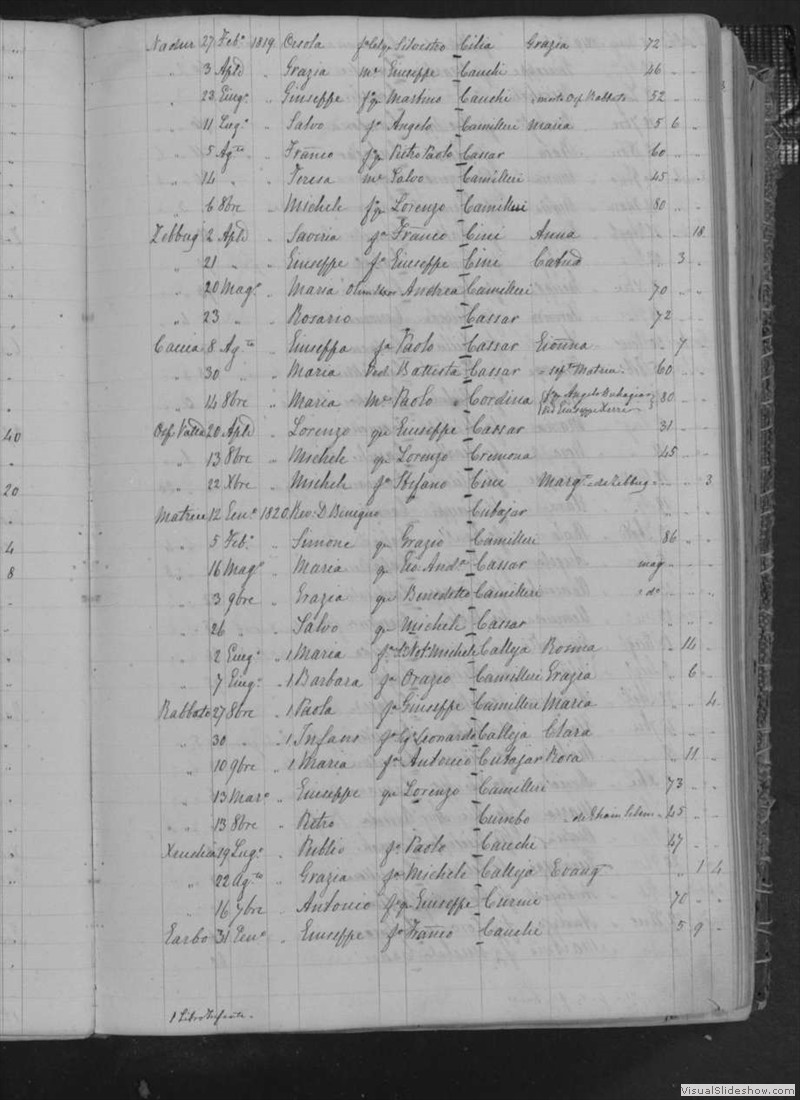 40
20
4
8
Nadur 27 Feb.º 1819 Orsola fª Silvestro Cilia Grazia 72 " "
" 3 Aple " Grazia mº Giuseppe Cauchi 46 " "
" 23 Giug.º " Giuseppe Martino Cauchi 52 " "
" 11 Lug.º " Salvo fº Angelo Camilleri Maria 5 6 "
" 5 Ag.to " Franco Pietro Paolo Cassar 60 " "
" 14 " " Teresa mº Salvo Camilleri 45 " "
" 6 8bre " Michele Lorenzo Camilleri 80 " "
Zebbug 2 Aple " Saveria fª Franco Cini Anna " " 18
" 21 " " Giuseppe fº Giuseppe Cini Catna " 3 "
" 20 Mag.º " Maria Andrea Camilleri 70 " "
" 23 " " Rosario Cassar 72 " "
Caccia 8 Ag.to " Giuseppa fª Paolo Cassar Gionna " 7 "
" 30 " " Maria Ved. Battista Cassar Matrice 60 " "
" 14 8bre " Maria mº Paolo Cordina Angelo Buhagiar Ved Giuseppe Xerri 80 " "
20 Aple " Lorenzo qm Giuseppe Cassar 31 " "
" 13 8bre " Michele qm Lorenzo Cremona 45 " "
" 22 Xbre " Michele fº Stefano Cini Marg.ta de Zebbug " " 3
Matrice 12 Gen.º 1820 Rev. D. Benigno Cutajar
" 5 Feb.º " Simone qm Grazio Camilleri 86 " "
" 16 Mag.º " Maria qm Gio And.a Cassar mag
" 3 9bre " Grazia qm Benedetto Camilleri " dº
" 26 " " Salvo qm Michele Cassar
" 2 Giug.º 1 Maria Not.º Michele Calleja Rosina " 14 "
" 7 Giug.º 1 Barbara fª Orazio Camilleri Grazia " 6 "
Rabbato 27 8bre 1 Paola fª Giuseppe Camilleri Maria " " 4
" 30 " 1 Infans Leonardo Calleja Clara
" 10 9bre 1 Maria fª Antonio Cutajar Rosa " 11 "
" 13 Mar.º " Giuseppe qm Lorenzo Camilleri 73 " "
" 13 8bre " Pietro Cumbo di Ghain silem 45 " "
Xeuchia 19 Lug.º " Publio fº Paolo Cauchi 47 " "
" 22 Ag.to " Grazia fª Michele Calleja Evang " 1 4
" 16 7bre " Antonio Giuseppe Curmi 70 " "
Garbo 31 Gen.º " Giuseppe fº Franco Cauchi 5 9 "
1 Libro Infante.
VisualSlideshow.com